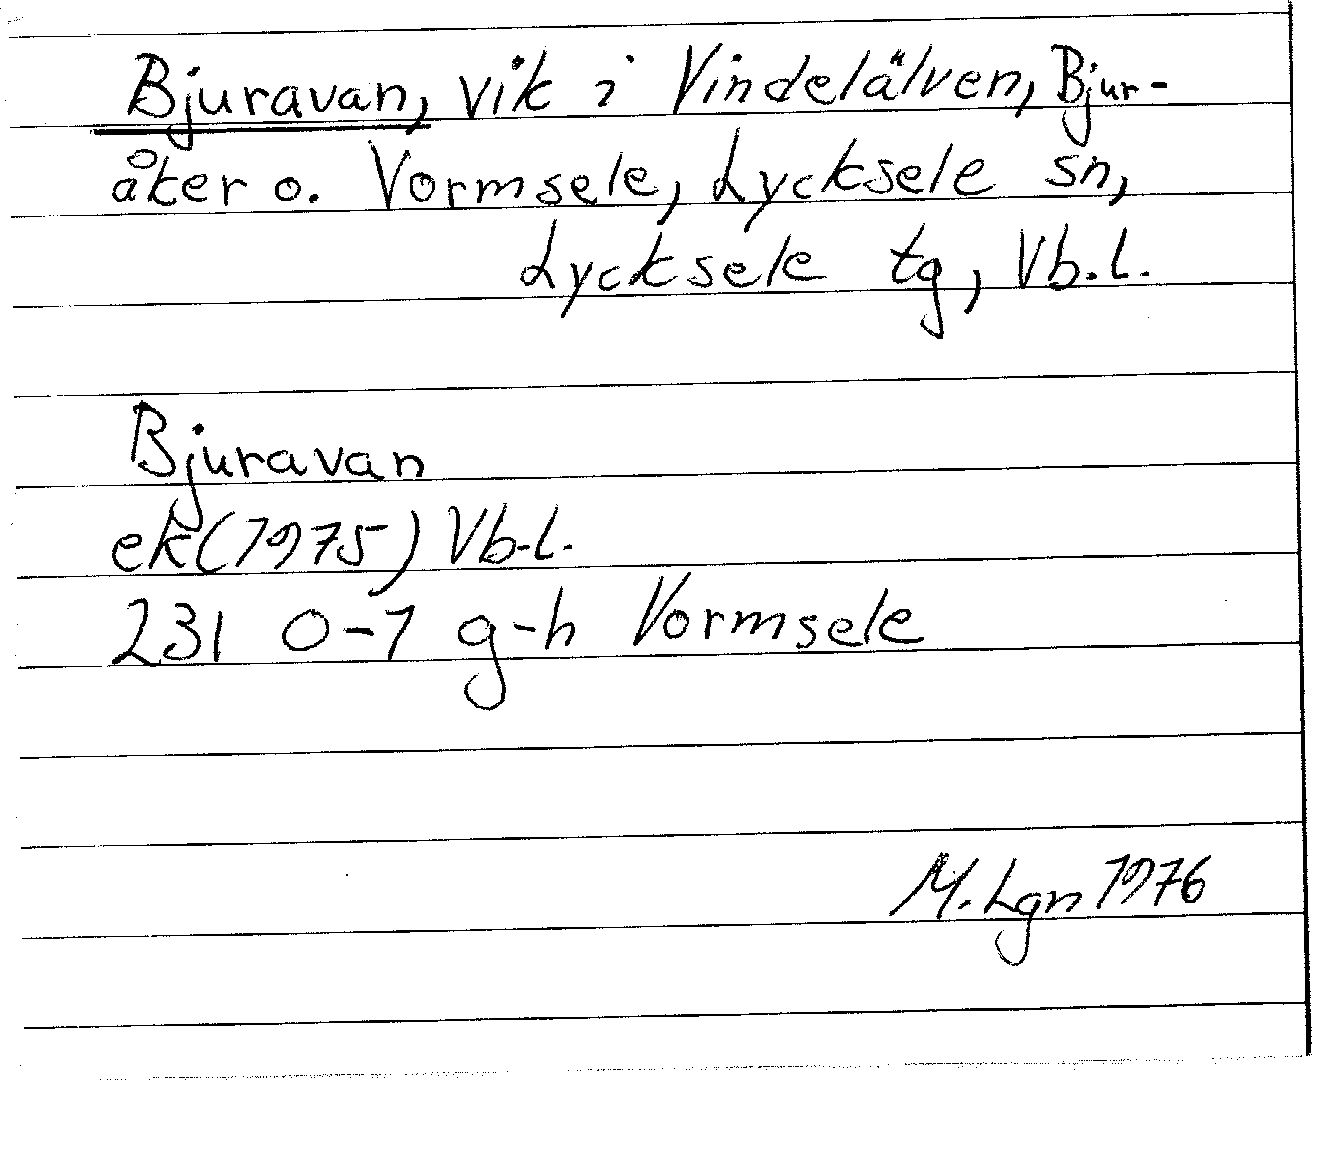 Bjuravan, vik i Vindelälven, Bjur-
åker o. Vormsele, Lycksele sn,
Lycksele tg, Vb.l.
Bjuravan
ek(1975) Vb.l.
231 0-1 g-h Vormsele
M. Lgn 1976